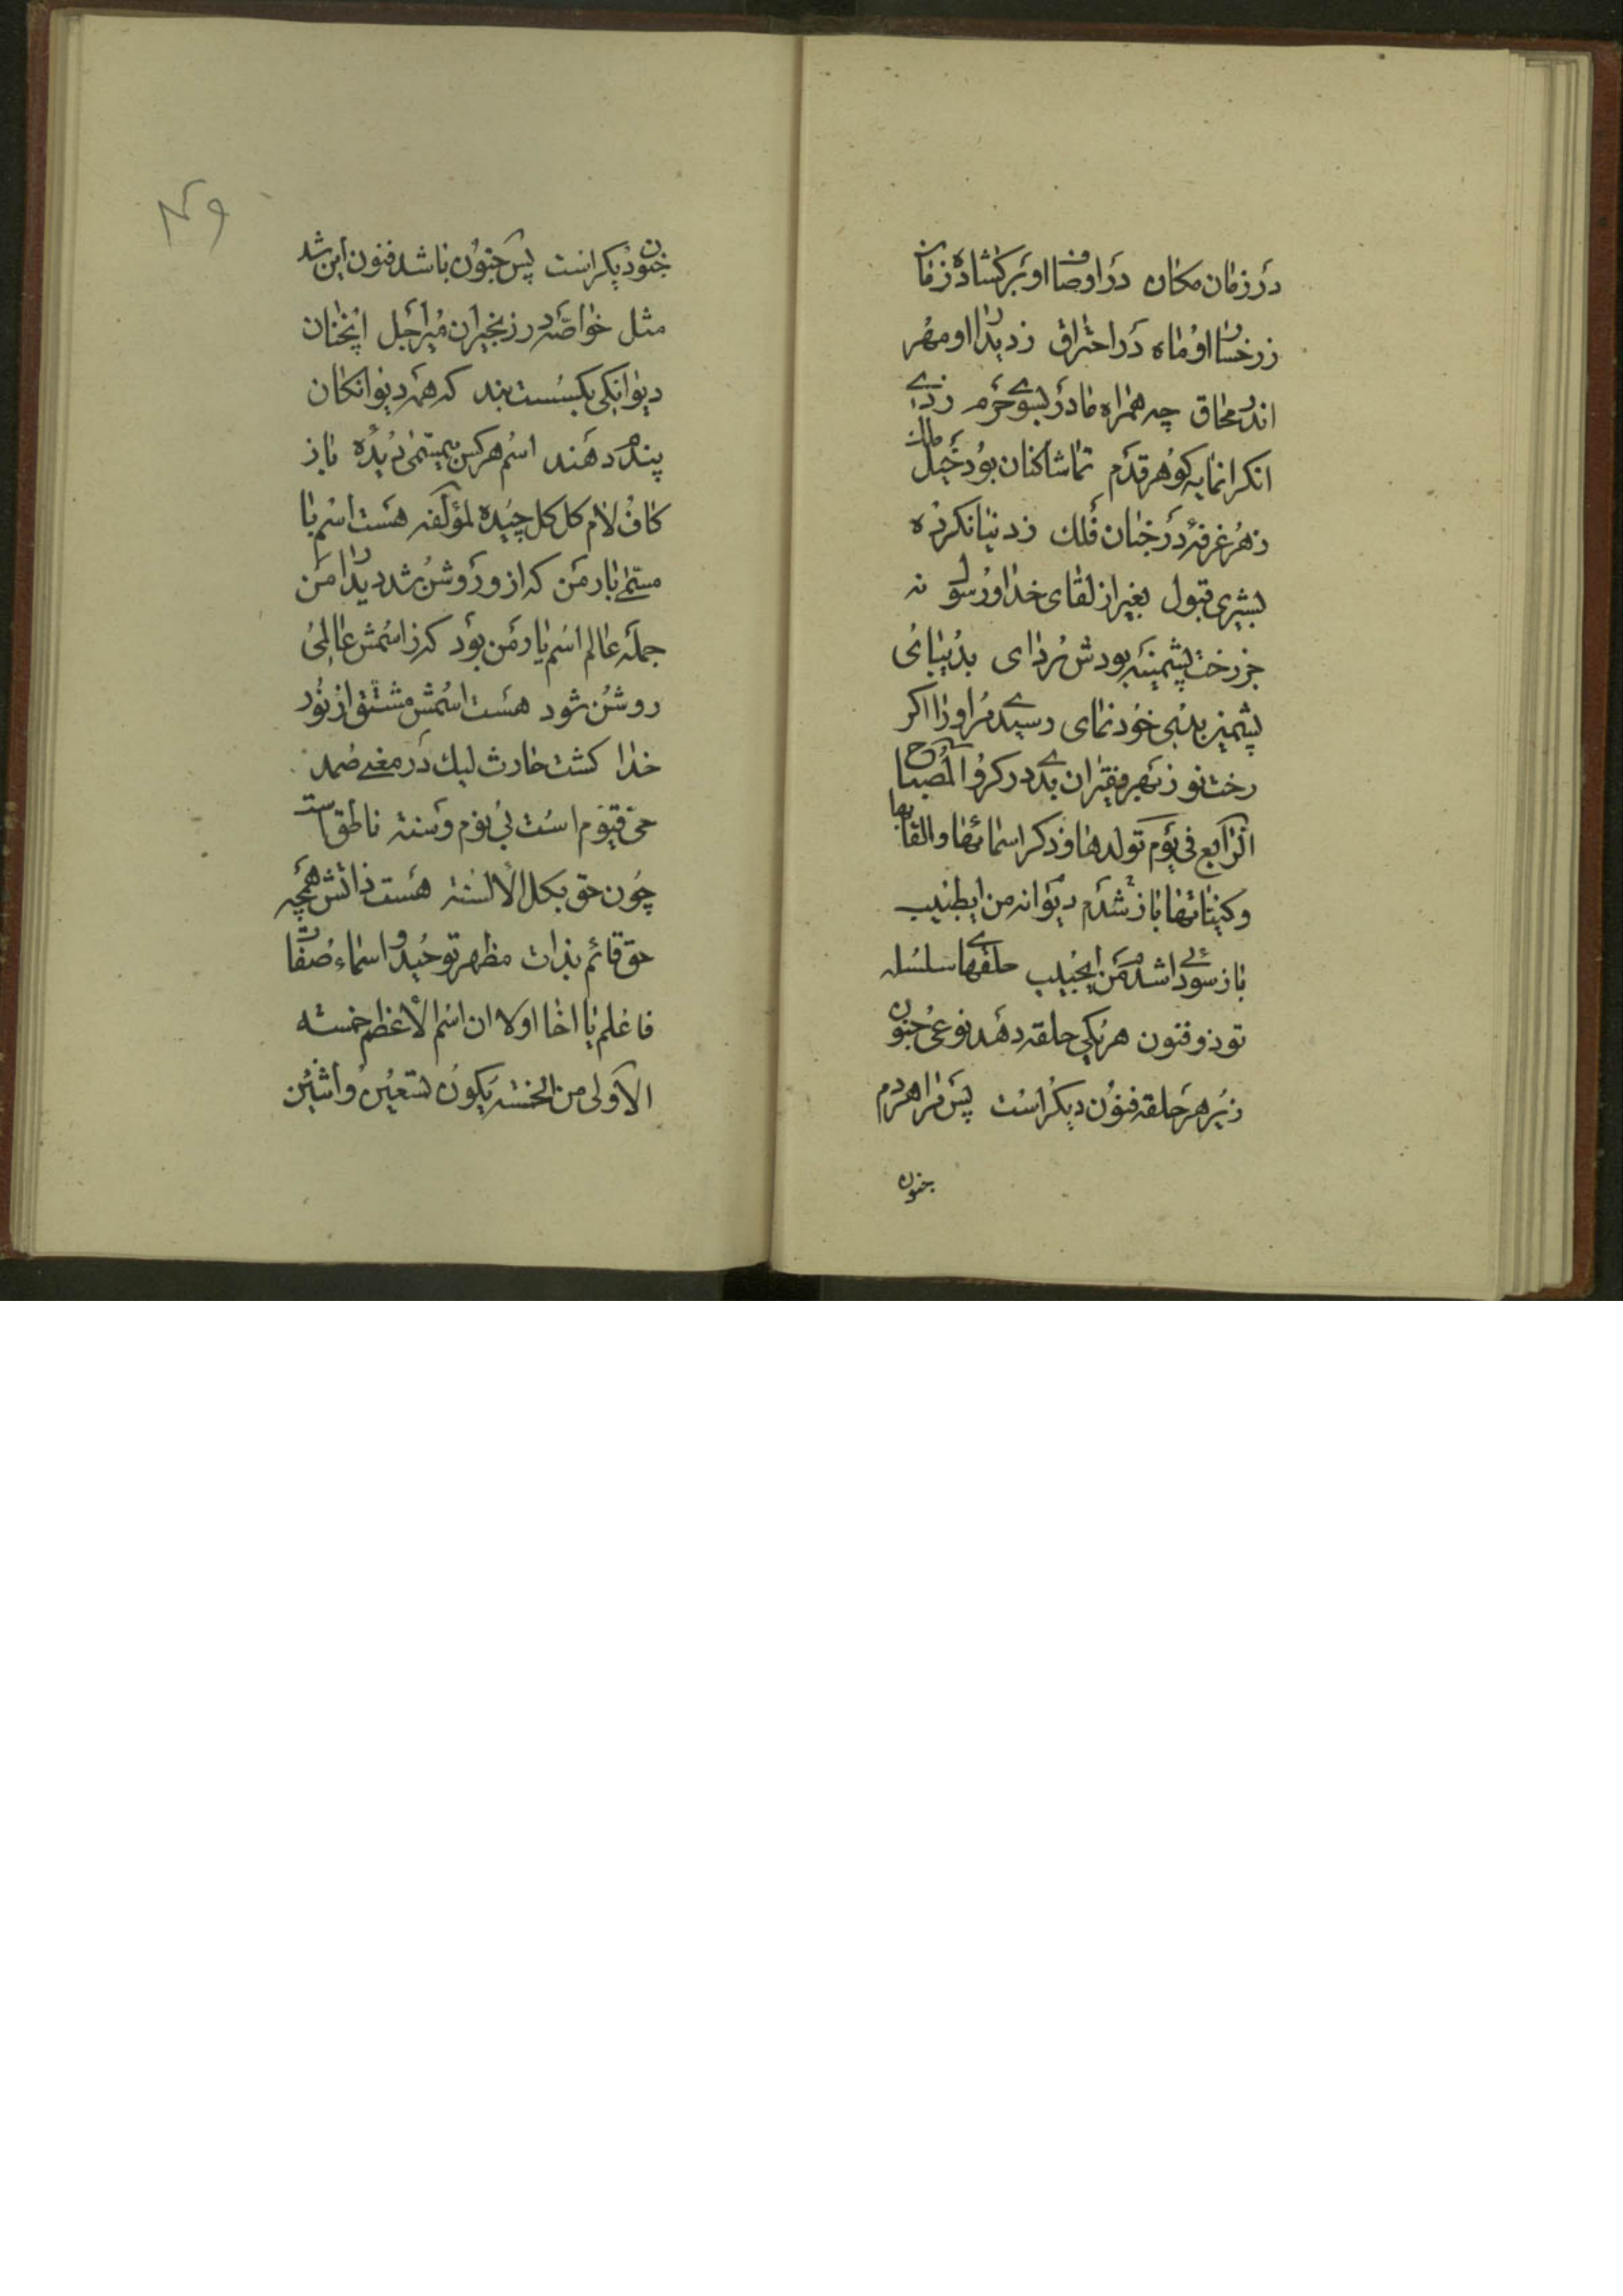 در زمان مکان در اوصاف او بر کشاده زمان
ز رخسار او ماه در احتراق ز دیدار او مهر
اندر محاق چه همراه مادر بسوی حرم زدی
آنکرانمایه کوهر قدم تماشاکنان بود خیل ملک
ز هر غرفهٔ در جنان فلک ز دنیا نکرده
بشیری قبول بغیر از لقای خدا و رسول نه
جز رخت پشمینه بودش بردای بدیبای
پشمین بدنی خودنمای رسیدی مر او را اکر
رخت نو ز بهر فقیران بدی در کرو المصباح
الرابع فی یوم تولدها و ذکر اسمائها والقابها
وکنیتاتها باز شدم دیوانه من ایطبیب
باز سودائی شدم من ایحبیب حلقهای سلسله
تو ذو فنون هر یکی حلقه دهد نوعی جنون
زیر هر حلقه فنون دیکر است پس مرا هر دم
جنون
جنون دیکر است پس جنون باشد فنون این شد
مثل خواصّه در زنجیر ان میر اجل آنچنان
دیوانکی بکسست بند که همه دیوانکان
پندم دهند اسم هر کس بیمسمّی دیدهٔ باز
کاف و لام کل کل چیدهٔ لمؤلفه هست اسم با
مسمّی یار من که ازو روشن شد دیدار من
جمله عالم اسم یار من بود کز اسمش عالمی
روشن شود هست اسمش مشتق از نور
خدا کشت حارث لیک در معنی صمد
حی قیوم است بی نوم و سنة ناطق است
چون حق بکل الألسنة هست ذاتش همچه
حق قائم بذات مظهر توحید و اسماء صفات
فاعلم یا اخا اولا ان اسم الأعظم خمسته
الاولی من الخمسته یکون تسعین واثنین